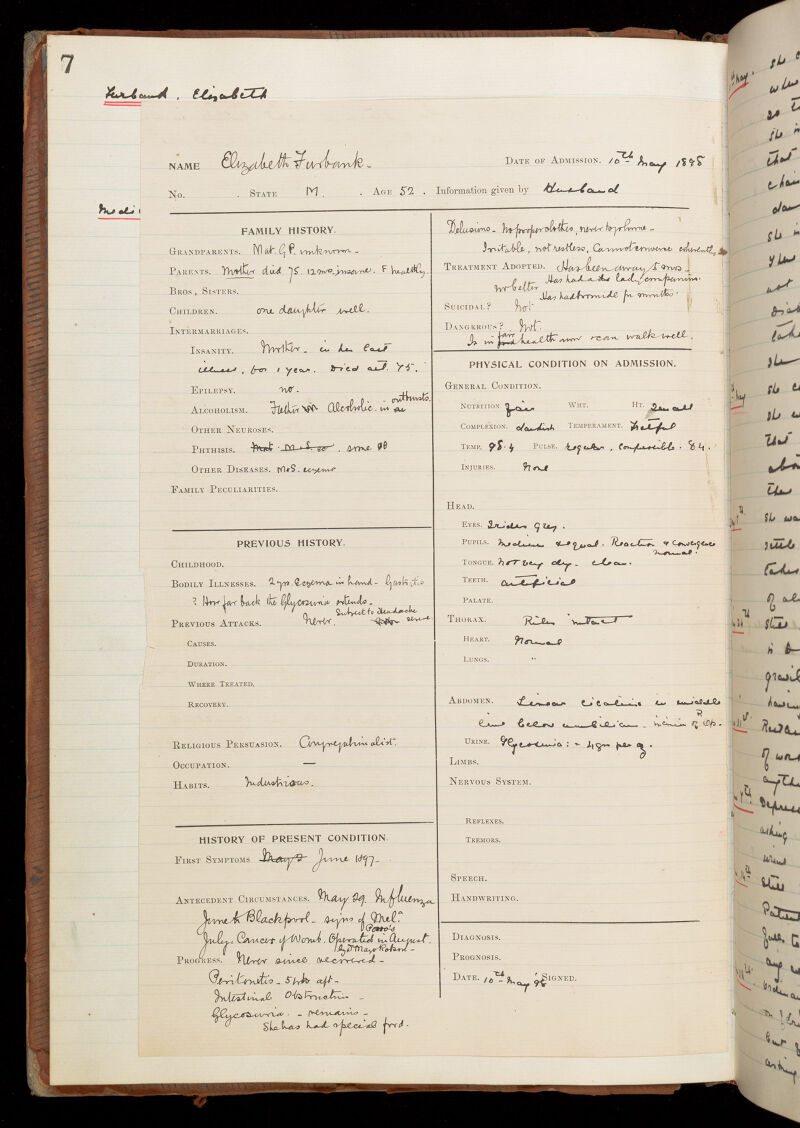 7
Furbank, Elizabeth
NAME Elizabeth Furbank - DATE OF ADMISSION. 10th May 1898
No. STATE M. AGE 52. Information given by Husband
FAMILY HISTORY.
GRANDPARENTS. Mat. G.P. unknown -
PARENTS. Mother died 75. 12 mos insane. F healthy.
BROS., SISTERS.
CHILDREN. one daughter well.
INTERMARRIAGES.
INSANITY. Mother - in her last
illness, for 1 year. Died aet 75.
EPILEPSY. no.
ALCOHOLISM. Father Alcoholic in outbursts.
OTHER NEUROSES.
PHTHISIS. some
OTHER DISEASES. M & S. eczema
FAMILY PECULIARITIES.
PREVIOUS HISTORY.
CHILDHOOD.
BODILY ILLNESSES. 2 yrs. Eczema in hand - Gastritis
? How far back the Glycosuria extends -
Subject to Headache
PREVIOUS ATTACKS. Never. severe
CAUSES.
DURATION.
WHERE TREATED.
RECOVERY.
RELIGIOUS PERSUASION. Congregationalist.
OCCUPATION. —
HABITS. Industrious.
HISTORY OF PRESENT CONDITION.
FIRST SYMPTOMS. June 1897 -
ANTECEDENT CIRCUMSTANCES. May 29. Influenza
June to Blackpool - signs of Mel.
July. Cancer of Womb. Operated in August.
by Dr Mayo Robson -
PROGRESS. Never since recovered -
Peritonitis - 5 wks aft -
Intestinal Obstruction -
Glycosuria - remains -
She has had special food.
Delusions - No proper clothes, never to go home -
Irritable, not restless, Cannot converse coherently
TREATMENT ADOPTED. Has been away 5 mos -
no better Has had a lady companion.
Has had bromide for months.
SUICIDAL? Not.
DANGEROUS? Not.
Is in fair health now & can walk well.
PHYSICAL CONDITION ON ADMISSION.
GENERAL CONDITION.
NUTRITION. fair WHT. HT. Small
COMPLEXION. darkish TEMPERAMENT. fretful
TEMP. 98.4 PULSE. regular, compressible. 84.
INJURIES. None
HEAD.
EYES. Irides grey.
PUPILS. Medium & equal. Reaction & convergence
normal.
TONGUE. Not very dry. clean.
TEETH. artificial
PALATE.
THORAX. Ribs intact
HEART. Normal
LUNGS. "
ABDOMEN. Linear cicatrix in middle
line below umbilicus.
URINE. Glycosuria: - 4 grs per
LIMBS.
NERVOUS SYSTEM.
REFLEXES.
TREMORS.
SPEECH.
HANDWRITING.
DIAGNOSIS.
PROGNOSIS.
DATE. 10th May 98 SIGNED.